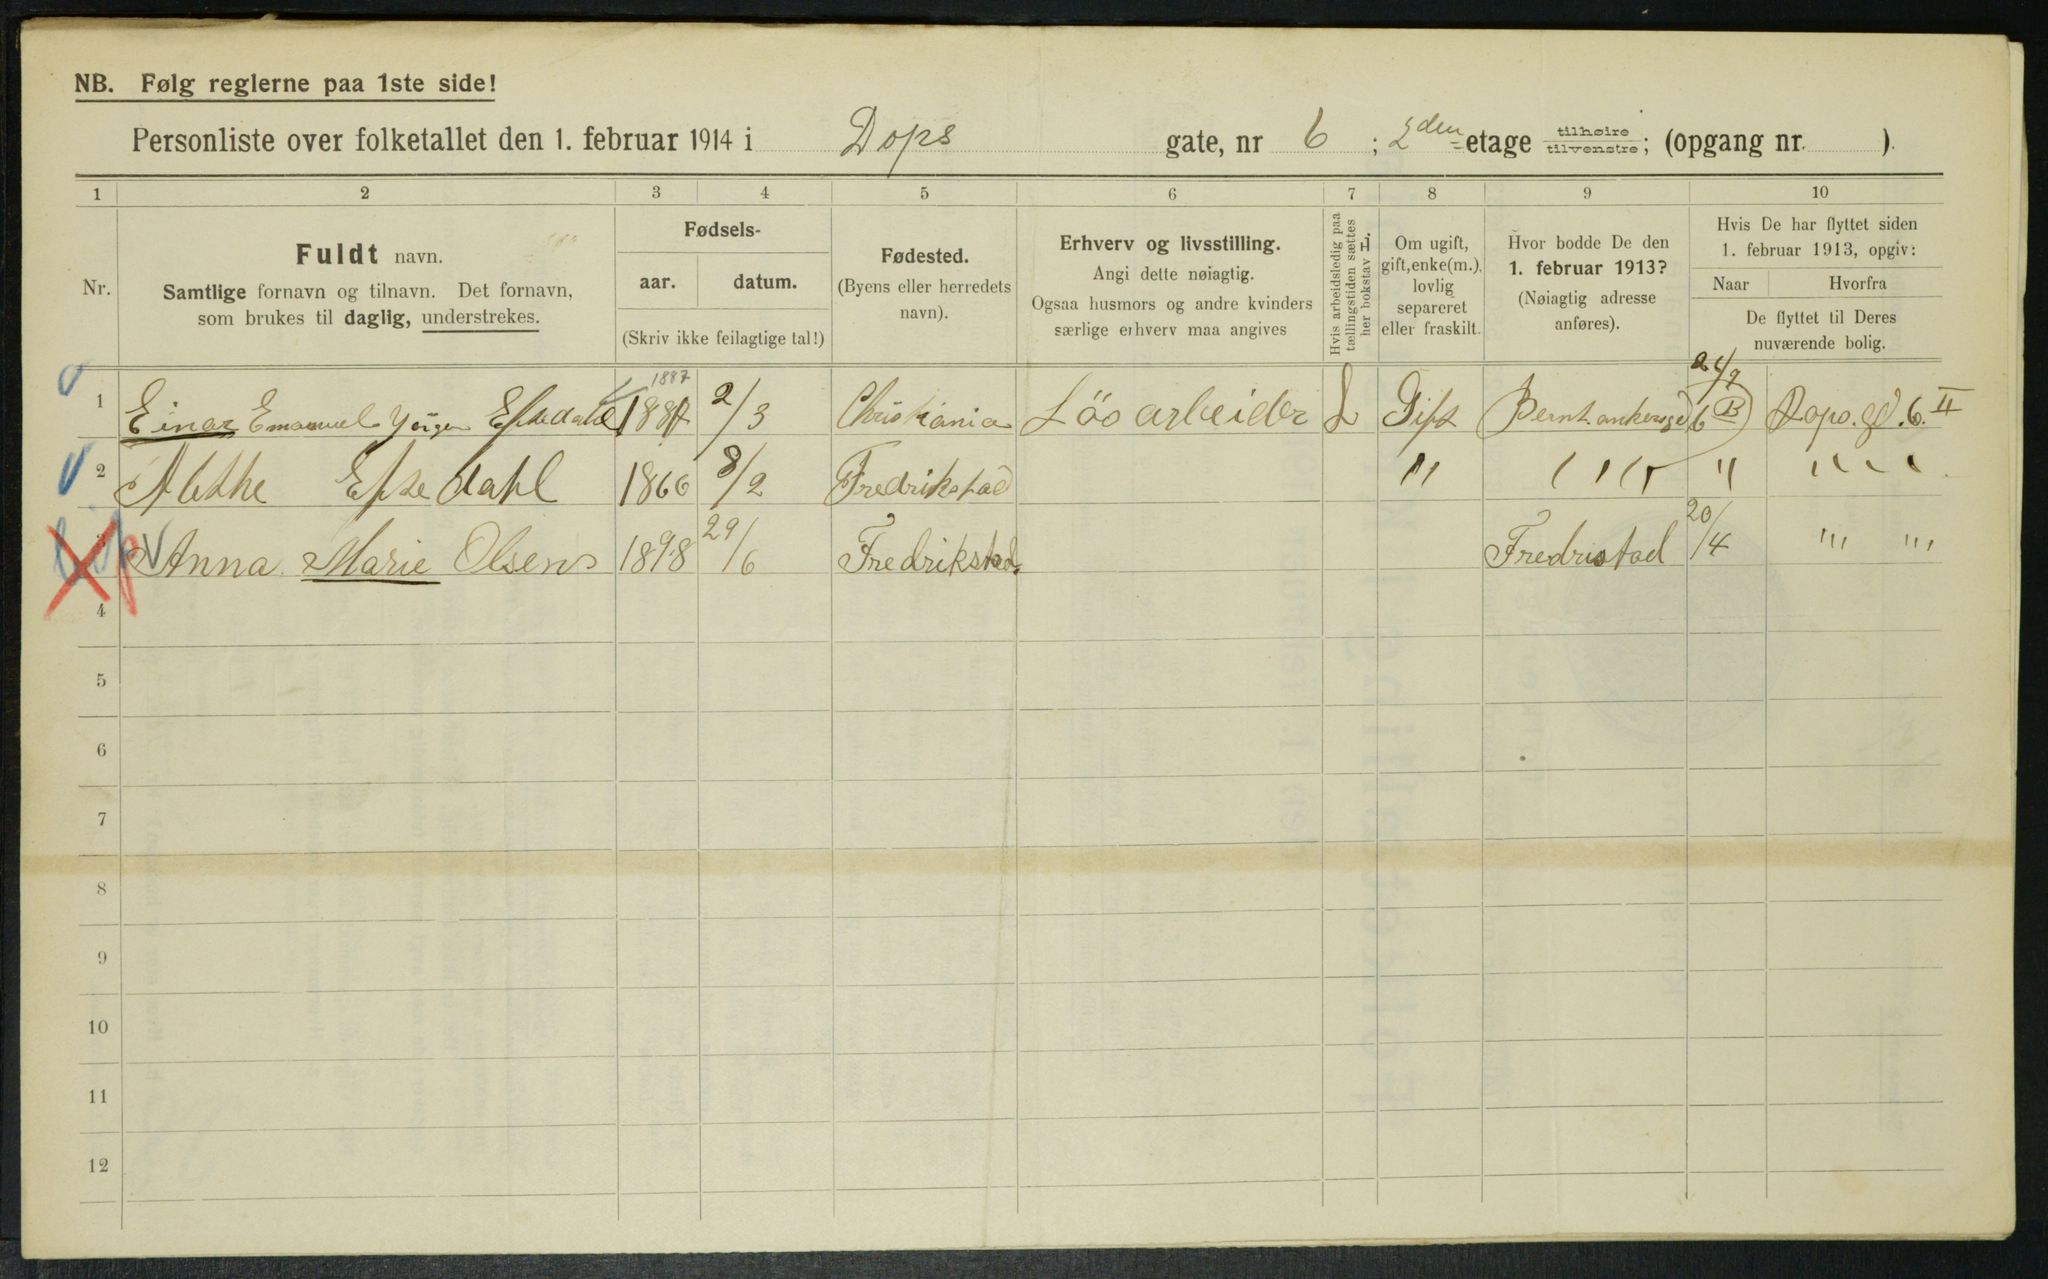 NB. Følg reglerne paa 1ste side!
Personliste over folketallet den 1. februar 1914 i Dops gate, nr 6 ; 2den etage tilhøire tilvenstre; (opgang nr. ).
1 2 3 4 5 6 7 8 9 10
Nr.
Fuldt navn.
Samtlige fornavn og tilnavn. Det fornavn,
som brukes til daglig, understrekes.
Fødsels-
aar. datum.
(Skriv ikke feilagtige tal!)
Fødested.
(Byens eller herredets
navn).
Erhverv og livsstilling.
Angi dette nøiagtig.
Ogsaa husmors og andre kvinders
særlige erhverv maa angives
Hvis arbeidsledig paa
tællingstiden sættes
her bokstav L.
Om ugift,
gift, enke(m.),
lovlig
separeret
eller fraskilt.
Hvor bodde De den
1. februar 1913?
(Nøiagtig adresse
anføres).
Hvis De har flyttet siden
1. februar 1913, opgiv:
Naar Hvorfra
De flyttet til Deres
nuværende bolig.
1887
1 Einar Emanuel Yörgen 2/3 Christiania Lös arbeider L Gift Bernt ankersgd 6 B 6. II
2 1866 8/2 Fredrikstad " " " " " " " " "
3 Anna Marie Olsen 1898 29/6 Fredrikstad Fredristad 20/4 " "
4
5
6
7
8
9
10
11
12